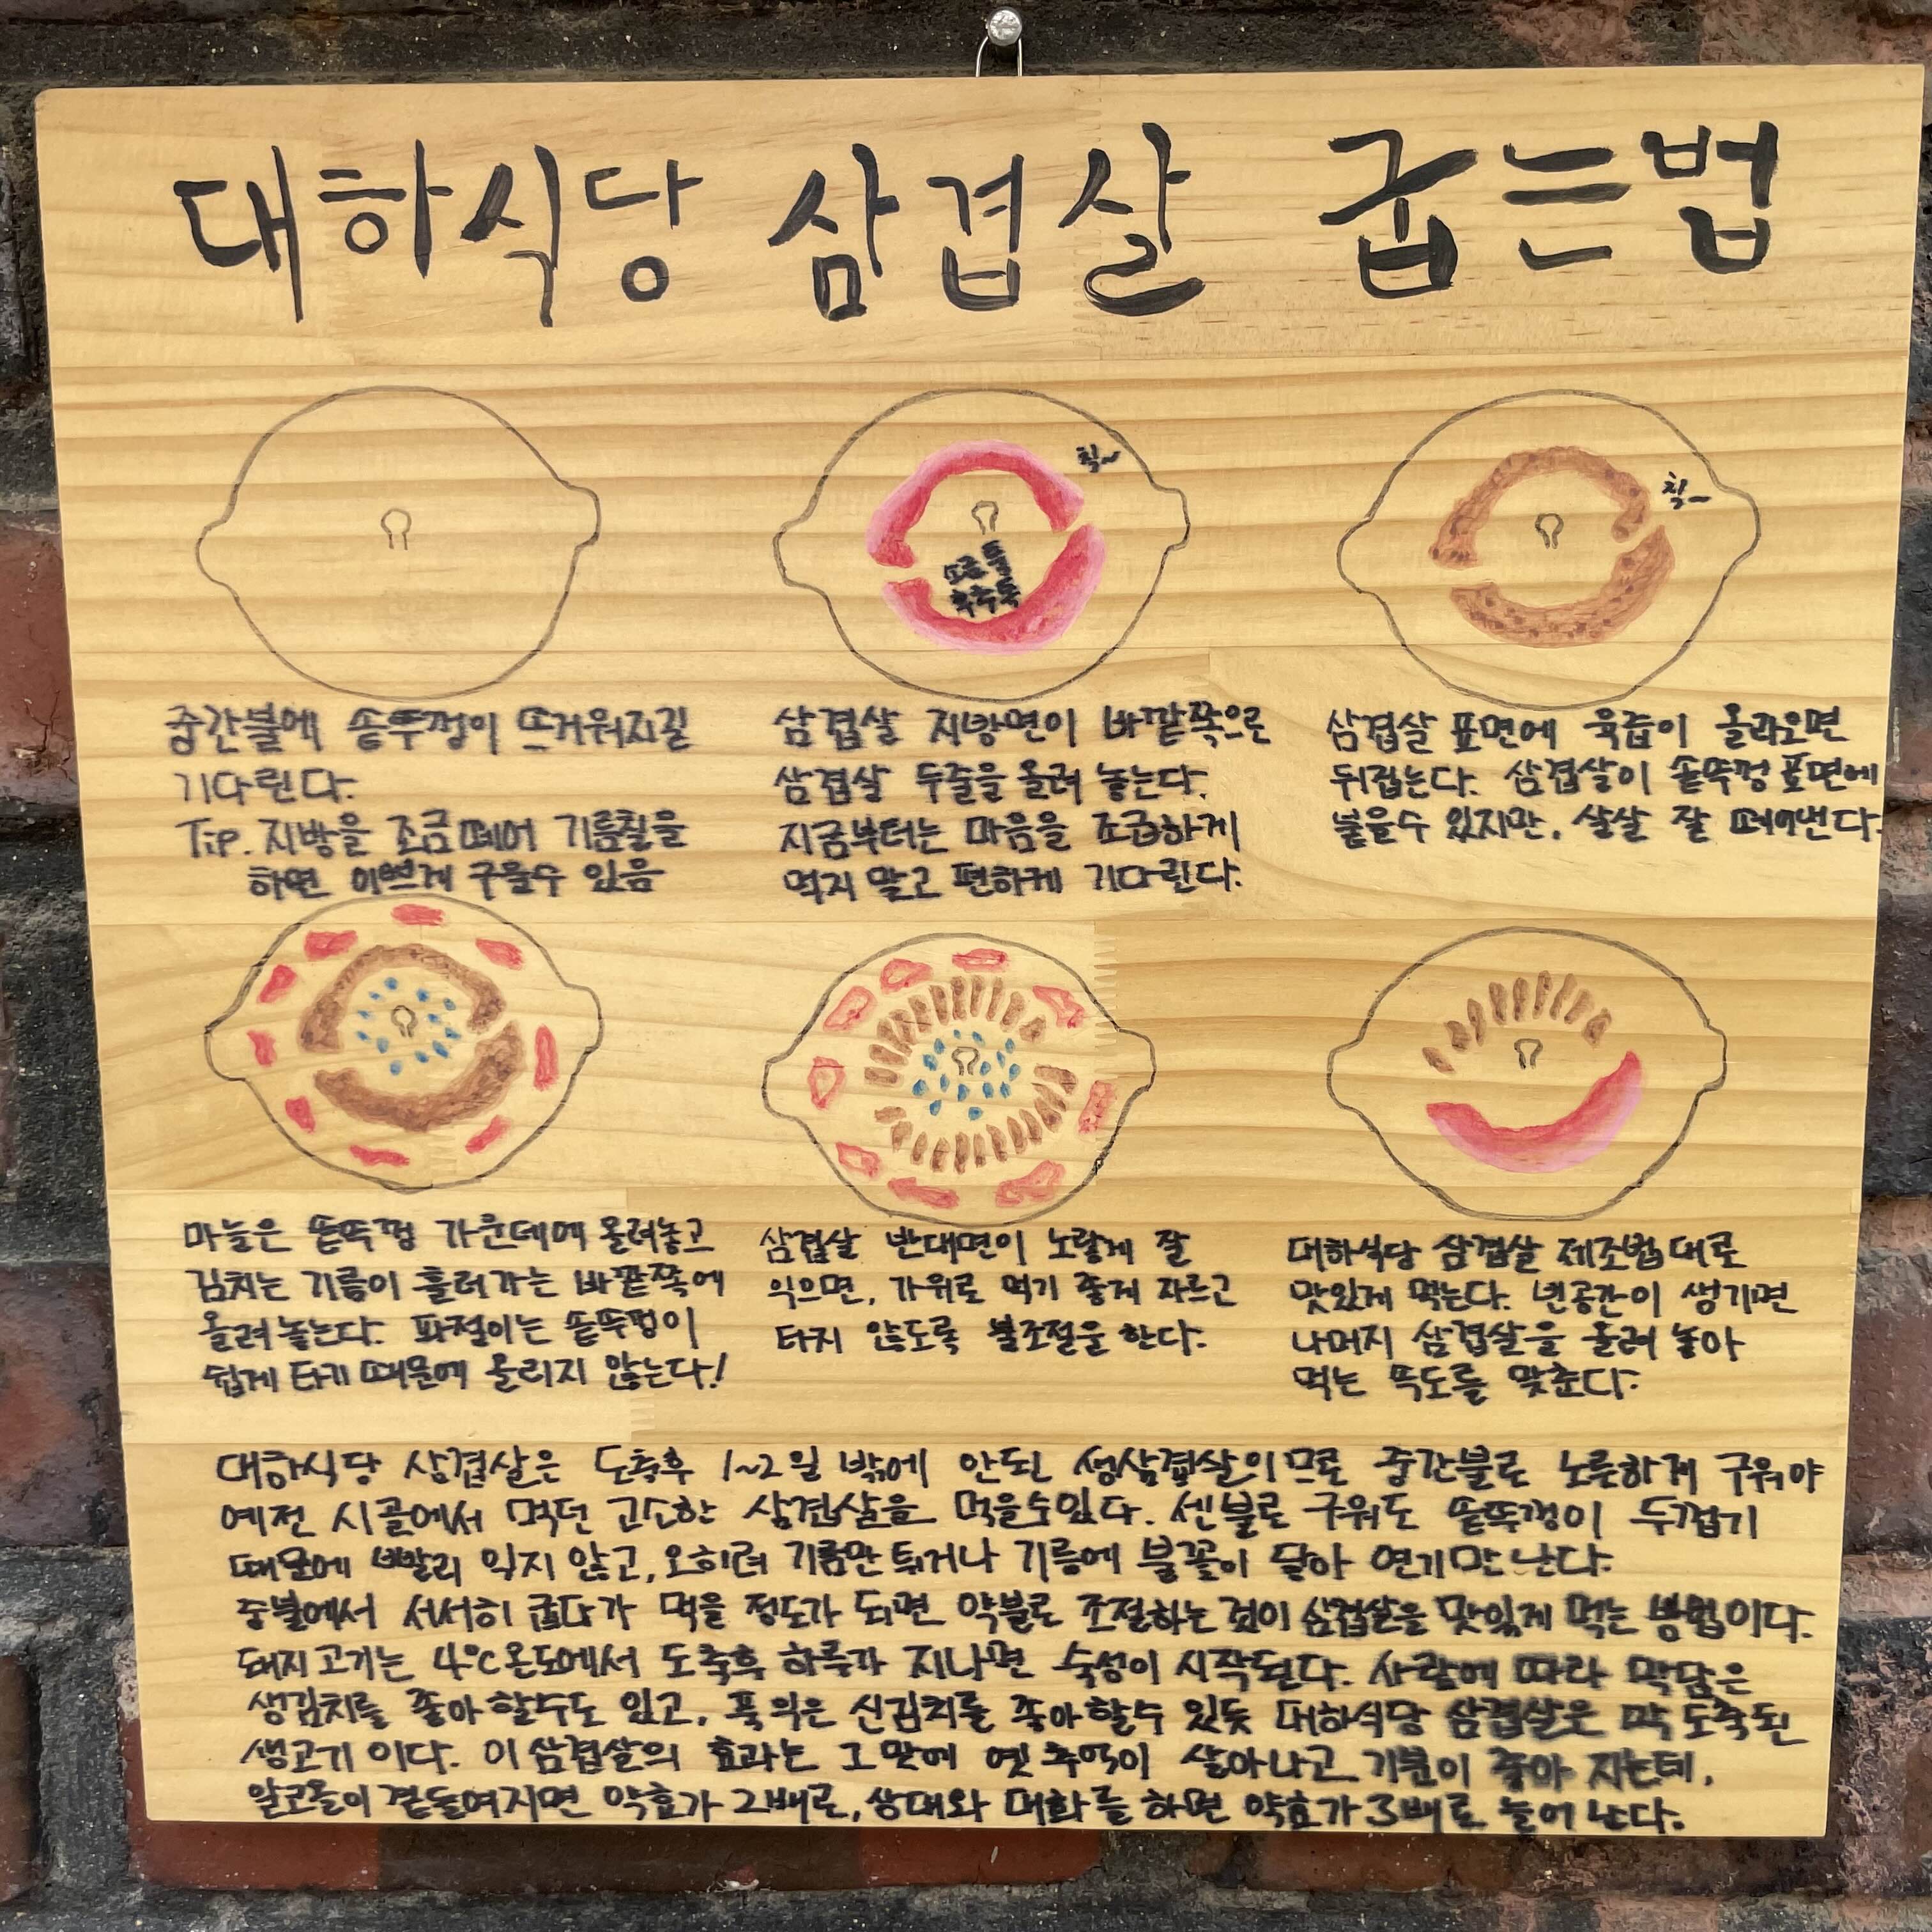 대하식당 삼겹살 굽는법
칙~
소금 톡
후추 톡
칙~
중간불에 솥뚜껑이 뜨거워지길
기다린다.
Tip. 지방을 조금떼어 기름칠을
하면 이쁘게 구울수 있음
삼겹살 지방면이 바깥쪽으로
삼겹살 두줄을 올려 놓는다.
지금부터는 마음을 조급하게
먹지 말고 편하게 기다린다.
삼겹살 표면에 육즙이 올라오면
뒤집는다. 삼겹살이 솥뚜껑 표면에
붙을수 있지만, 살살 잘 떼어낸다.
마늘은 솥뚜껑 가운데에 올려놓고
김치는 기름이 흘러가는 바깥쪽에
올려 놓는다. 파절이는 솥뚜껑이
쉽게 타기 때문에 올리지 않는다!
삼겹살 반대면이 노랗게 잘
익으면, 가위로 먹기 좋게 자르고
타지 않도록 불조절을 한다.
대하식당 삼겹살 제조법 대로
맛있게 먹는다. 빈공간이 생기면
나머지 삼겹살을 올려 놓아
먹는 속도를 맞춘다.
대하식당 삼겹살은 도축후 1~2일 밖에 안된 생삼겹살이므로 중간불로 노릇하게 구워야
예전 시골에서 먹던 고소한 삼겹살을 먹을수있다. 센불로 구워도 솥뚜껑이 두껍기
때문에 빨리 익지 않고, 오히려 기름만 튀거나 기름에 불꽃이 닿아 연기만 난다.
중불에서 서서히 굽다가 먹을 정도가 되면 약불로 조절하는 것이 삼겹살을 맛있게 먹는 방법이다.
돼지고기는 4℃온도에서 도축후 하루가 지나면 숙성이 시작된다. 사람에 따라 막담은
생김치를 좋아 할수도 있고, 푹 익은 신김치를 좋아할수 있듯 대하식당 삼겹살은 막 도축된
생고기 이다. 이 삼겹살의 효과는 그 맛에 옛 추억이 살아나고 기분이 좋아 지는데,
알코올이 곁들여지면 약효가 2배로, 상대와 대화를 하면 약효가 3배로 늘어 난다.